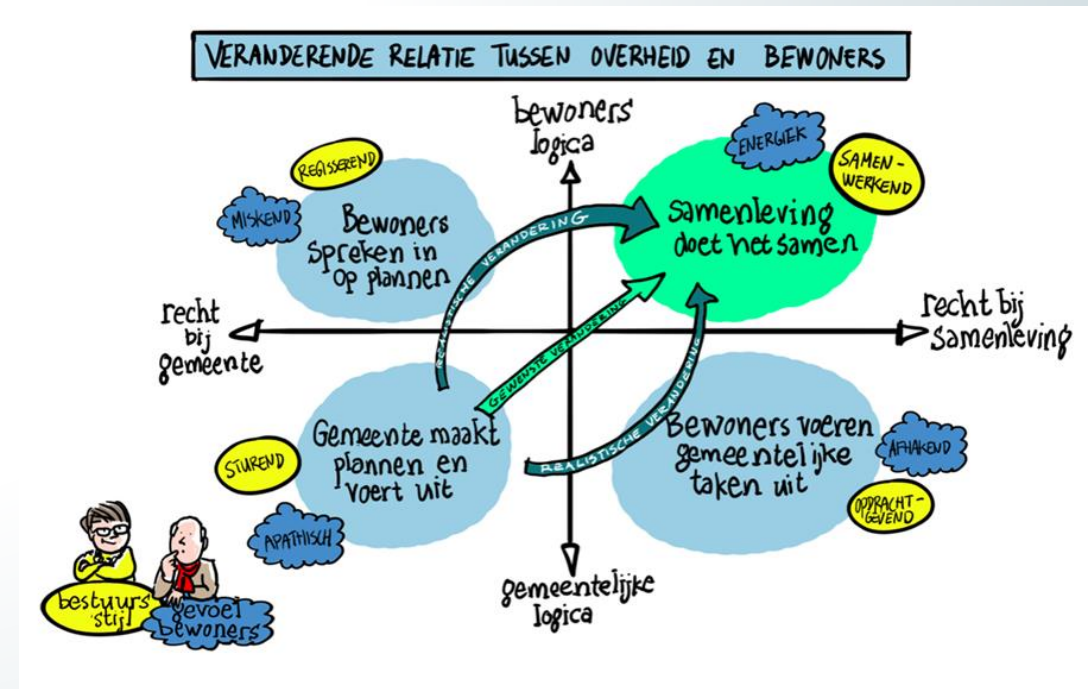 VERANDERENDE RELATIE TUSSEN OVERHEID EN BEWONERS
bewoners
logica
ENERGIEK
SAMEN-
WERKEND
REGISSEREND
MISKEND
Bewoners
spreken in
op plannen
REALISTISCHE VERANDERING
samenleving
doet het samen
recht
bij
gemeente
recht bij
samenleving
GEWENSTE VERANDERING
REALISTISCHE VERANDERING
Gemeente maakt
plannen en
voert uit
STUREND
APATHISCH
Bewoners voeren
gemeentelijke
taken uit
AFHAKEND
OPDRACHT-
GEVEND
gemeentelijke
logica
bestuurs
stijl
gevoel
bewoners